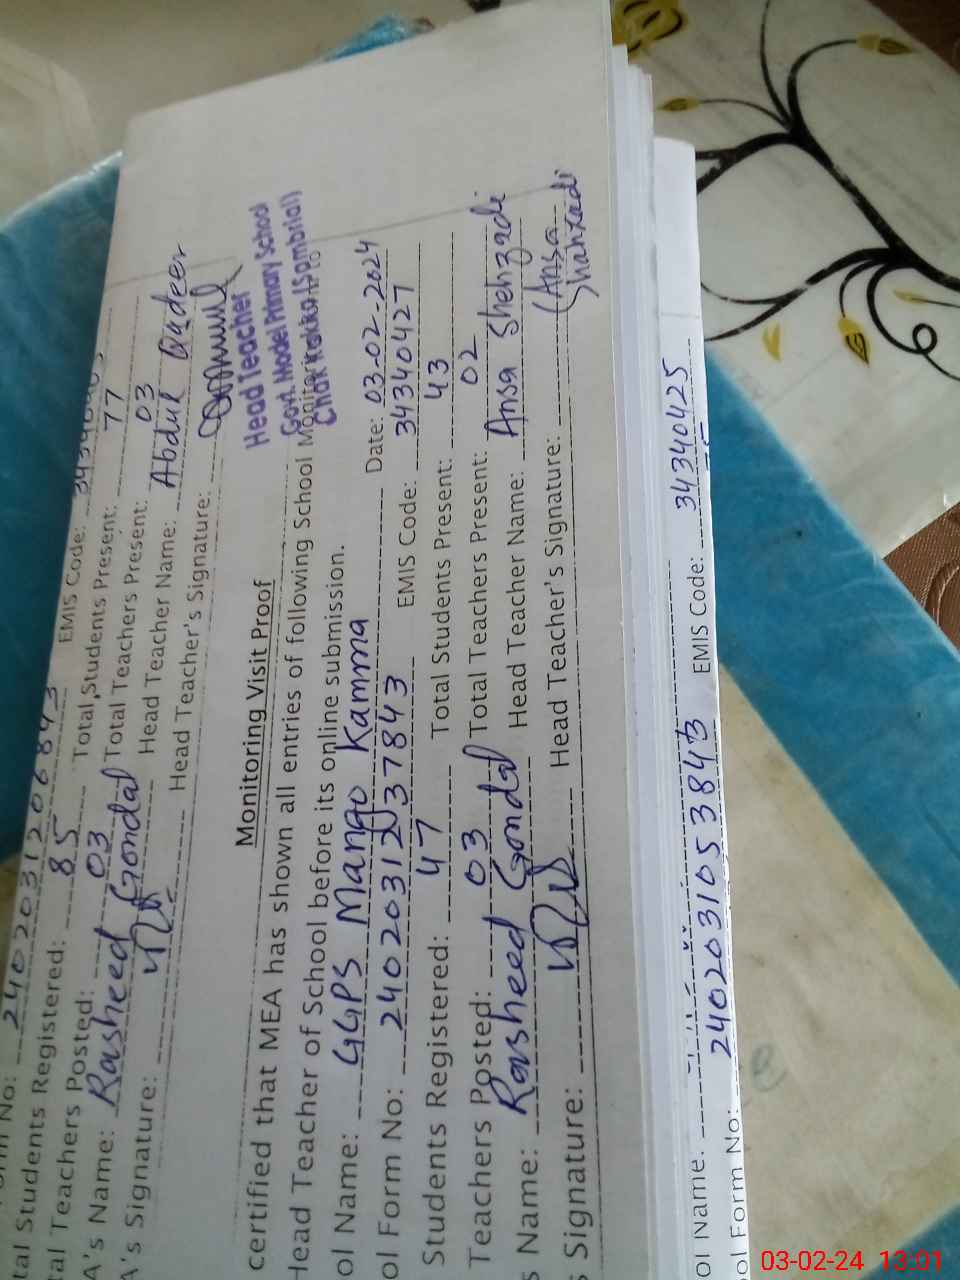 No: 240203120684 3 EMIS Code: 343404
tal Students Registered: 85 Total Students Present: 77
tal Teachers Posted: 03 Total Teachers Present: 03
A's Name: Rasheed Gondal Head Teacher Name: Abdul Qadeer
A's Signature: Head Teacher's Signature:
Head Teacher
Govt. Model Primary School
Chak Kakka (Sambrial)
Monitoring Visit Proof
certified that MEA has shown all entries of following School
Head Teacher of School before its online submission.
ol Name: GGPS Mango Kamma Date: 03-02-2024
ol Form No: 2402031237843 EMIS Code: 34340427
Students Registered: 47 Total Students Present: 43
Teachers Posted: 03 Total Teachers Present: 02
s Name: Rasheed Gondal Head Teacher Name: Ansa Shehzadi
s Signature: Head Teacher's Signature: (Ansa
Shahzadi
ol Name: EMIS Code: 34340425
ol Form No: 2402031053843
03-02-24 13:01